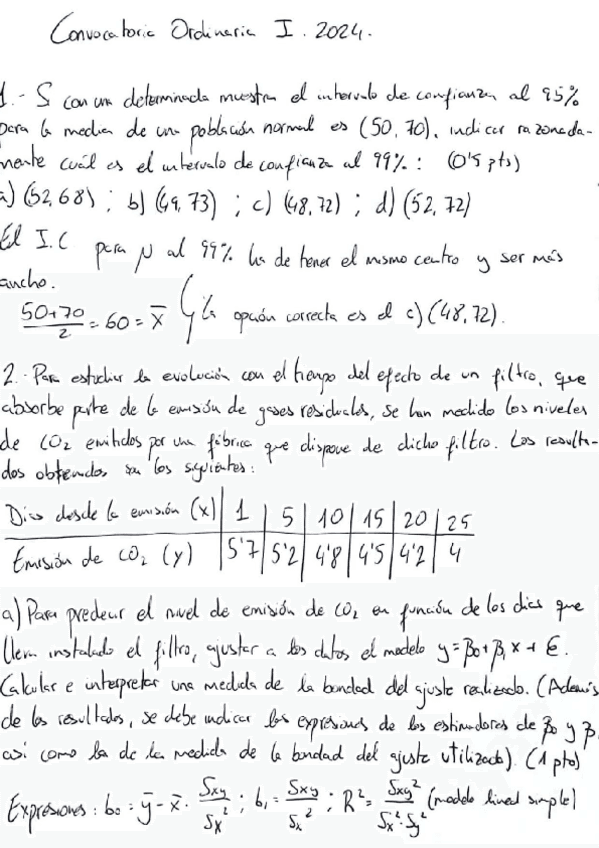 Convocatoria Ordinaria I. 2024.
1.- Si con una determinada muestra el intervalo de confianza al 95%
para la media de una población normal es (50, 70), indicar razonada-
mente cuál es el intervalo de confianza al 99%: (0'5 pts)
a) (52, 68) ; b) (49, 73) ; c) (48, 72) ; d) (52, 72)
El I.C para μ al 99% ha de tener el mismo centro y ser más
ancho.
(50+70)/2 = 60 = x̄ } la opción correcta es el c) (48, 72).
2.- Para estudiar la evolución con el tiempo del efecto de un filtro, que
absorbe parte de la emisión de gases residuales, se han medido los niveles
de CO₂ emitidos por una fábrica que dispone de dicho filtro. Los resulta-
dos obtenidos son los siguientes:
Días desde la emisión (x) | 1 | 5 | 10 | 15 | 20 | 25
Emisión de CO₂ (y) | 5'7 | 5'2 | 4'8 | 4'5 | 4'2 | 4
a) Para predecir el nivel de emisión de CO₂ en función de los días que
lleva instalado el filtro, ajustar a los datos el modelo y = β₀ + β₁ x + ε.
Calcular e interpretar una medida de la bondad del ajuste realizado. (Además
de los resultados, se debe indicar las expresiones de los estimadores de β₀ y β₁
así como la de la medida de la bondad del ajuste utilizado). (1 pto)
Expresiones: b₀ = ȳ - x̄ · Sxy/Sx² ; b₁ = Sxy/Sx² ; R² = Sxy²/(Sx²·Sy²) (modelo lineal simple)